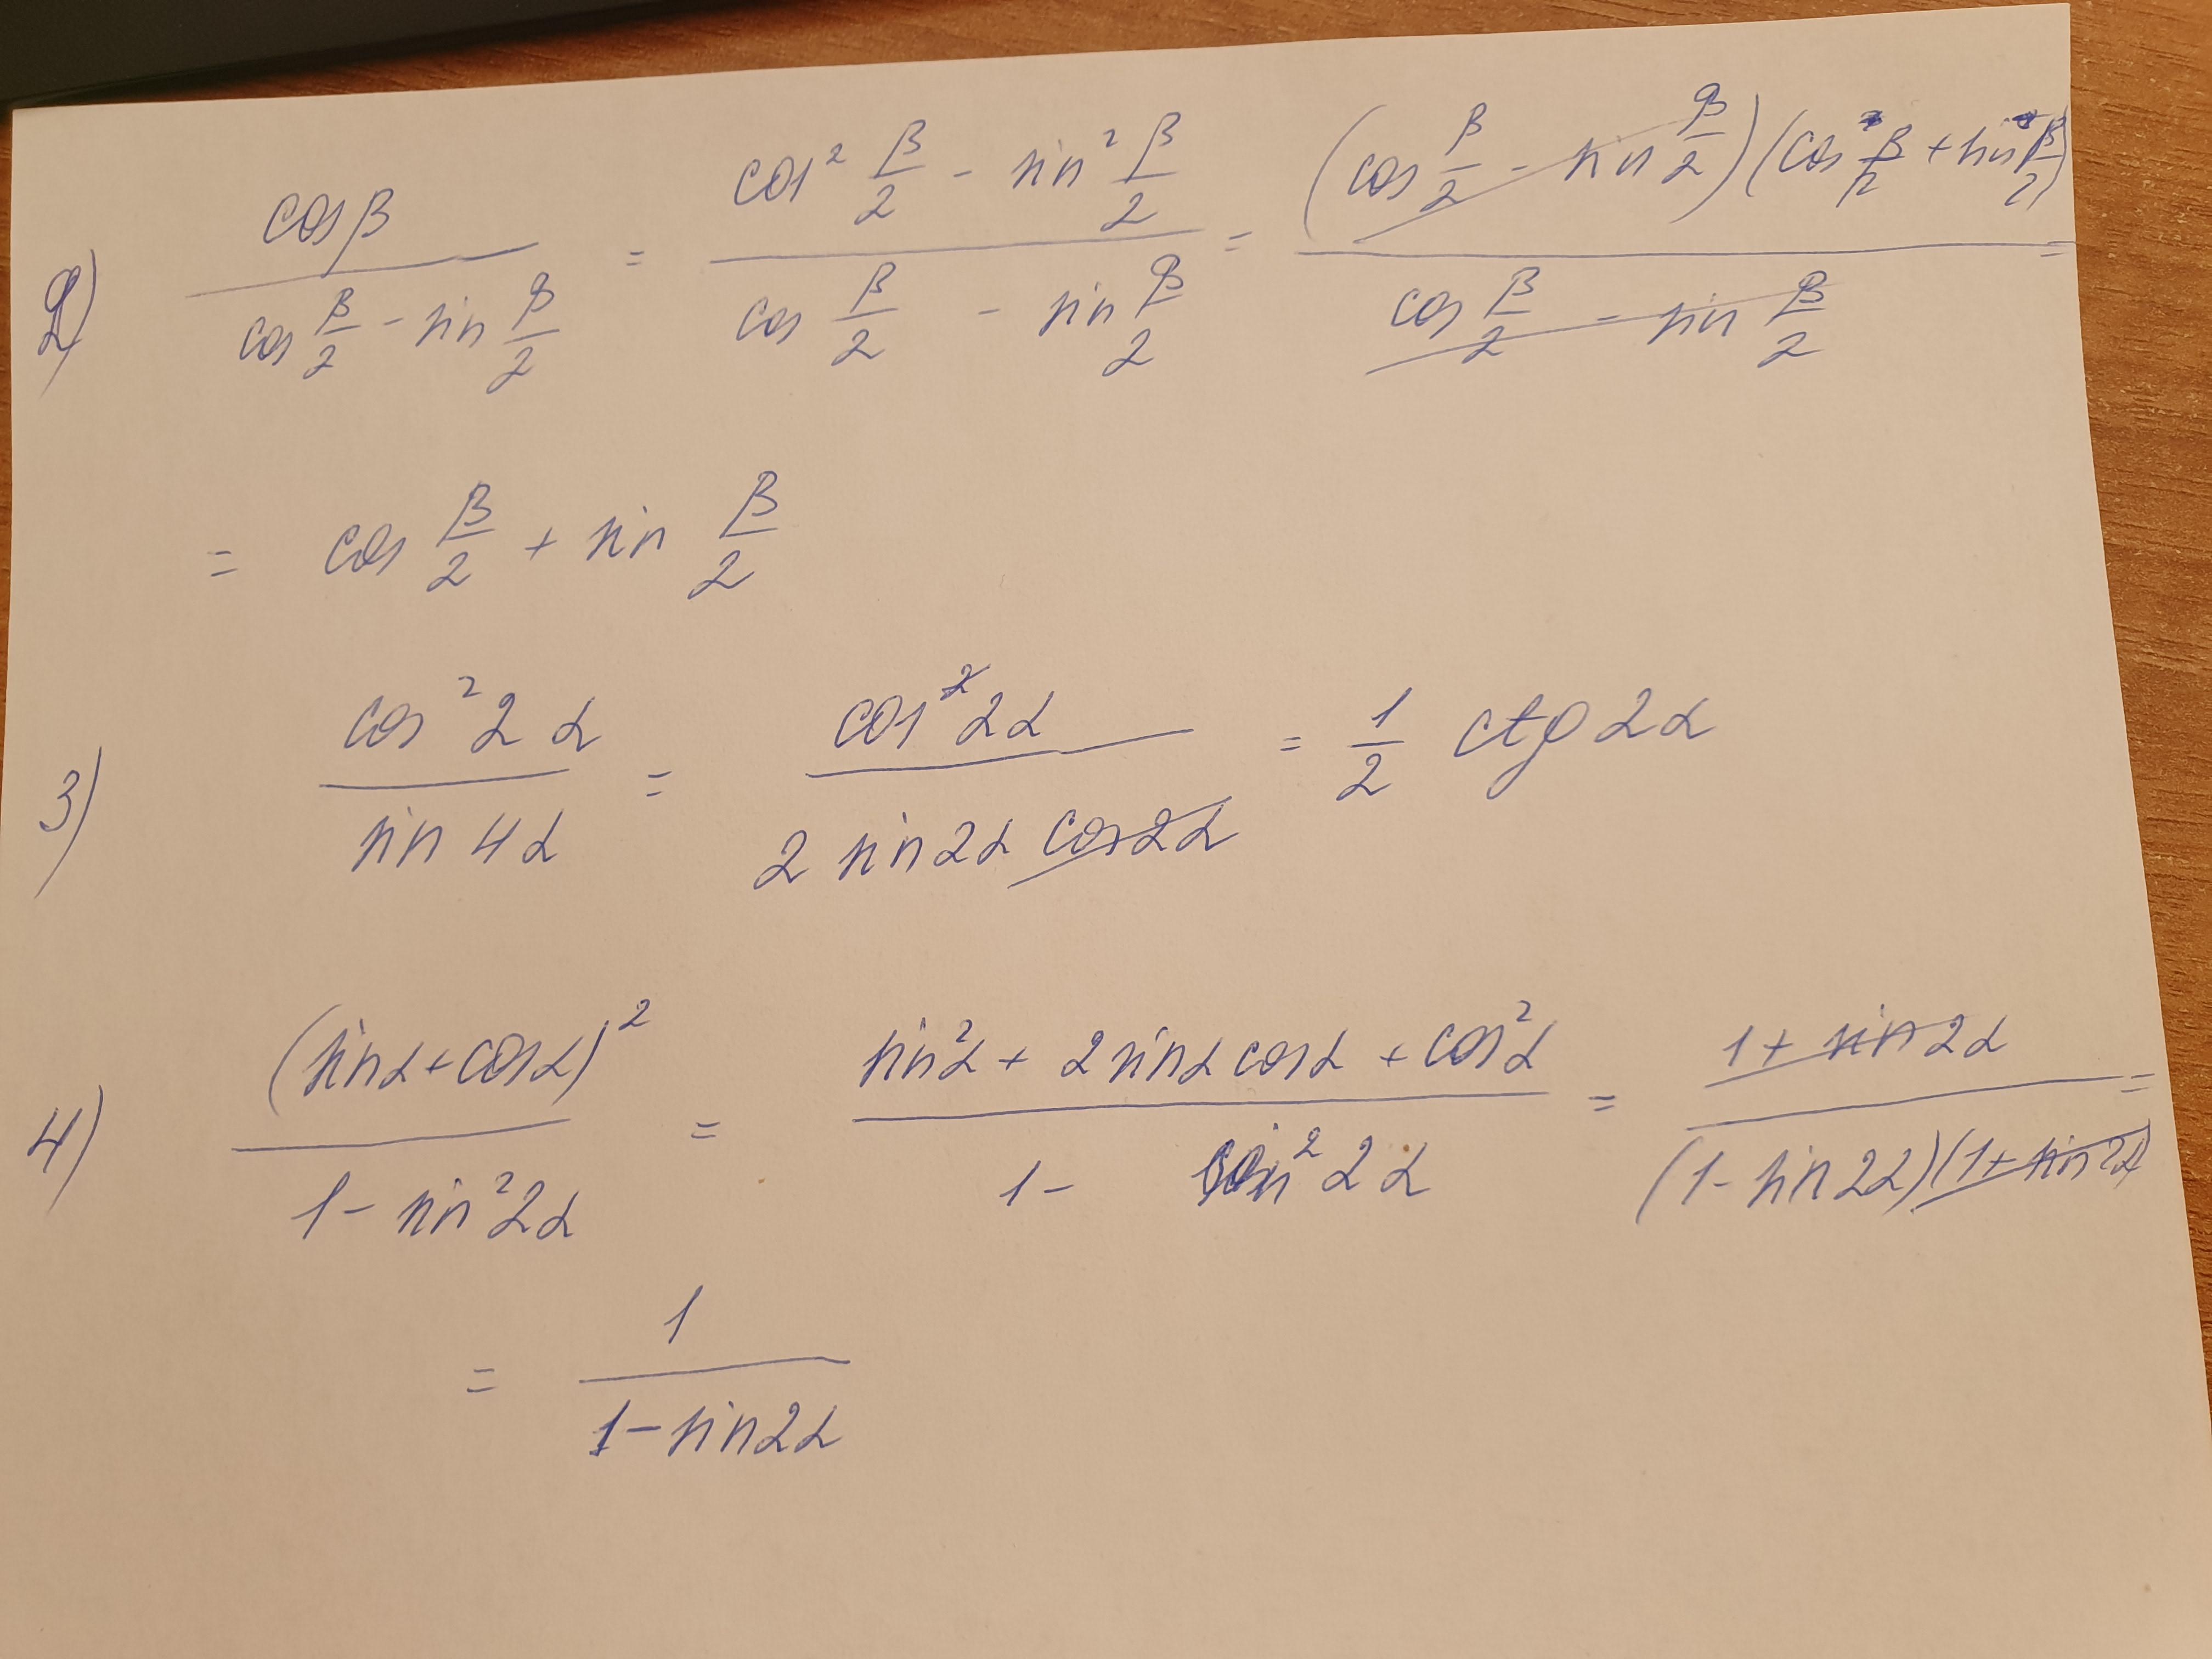 2) cosβ / (cos β/2 - sin β/2) = (cos² β/2 - sin² β/2) / (cos β/2 - sin β/2) = (cos β/2 - sin β/2)(cos β/2 + sin β/2) / (cos β/2 - sin β/2) =
= cos β/2 + sin β/2
3) cos²2α / sin4α = cos²2α / (2 sin2α cos2α) = 1/2 ctg2α
4) (sinα+cosα)² / (1-sin²2α) = (sin²α + 2sinα cosα + cos²α) / (1 - sin²2α) = (1+sin2α) / ((1-sin2α)(1+sin2α)) =
= 1 / (1-sin2α)